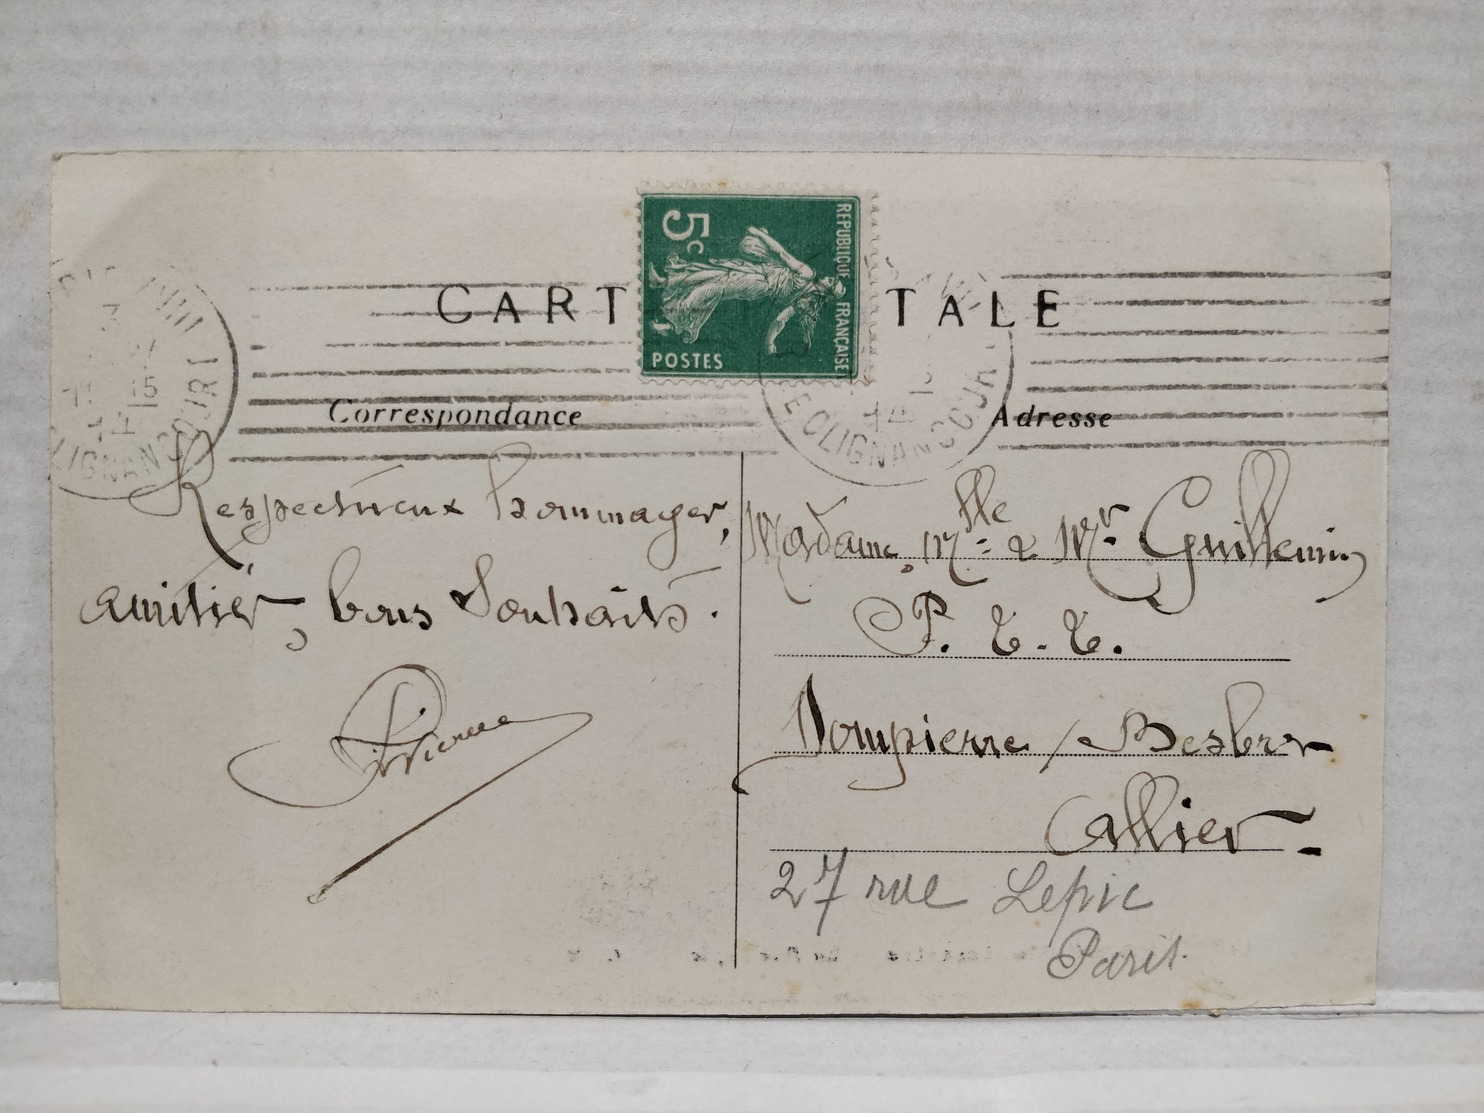 CART TALE
5c
REPUBLIQUE FRANÇAISE
POSTES
Correspondance
Adresse
CLIGNANCOURT
E CLIGNANCOUR
Respectueux hommages,
amitiés, bons Souhaits.
Madame, Mlle & Mr Guillemin
P. T. T.
Dompierre / Besbre
Allier
27 rue Lepic
Paris.